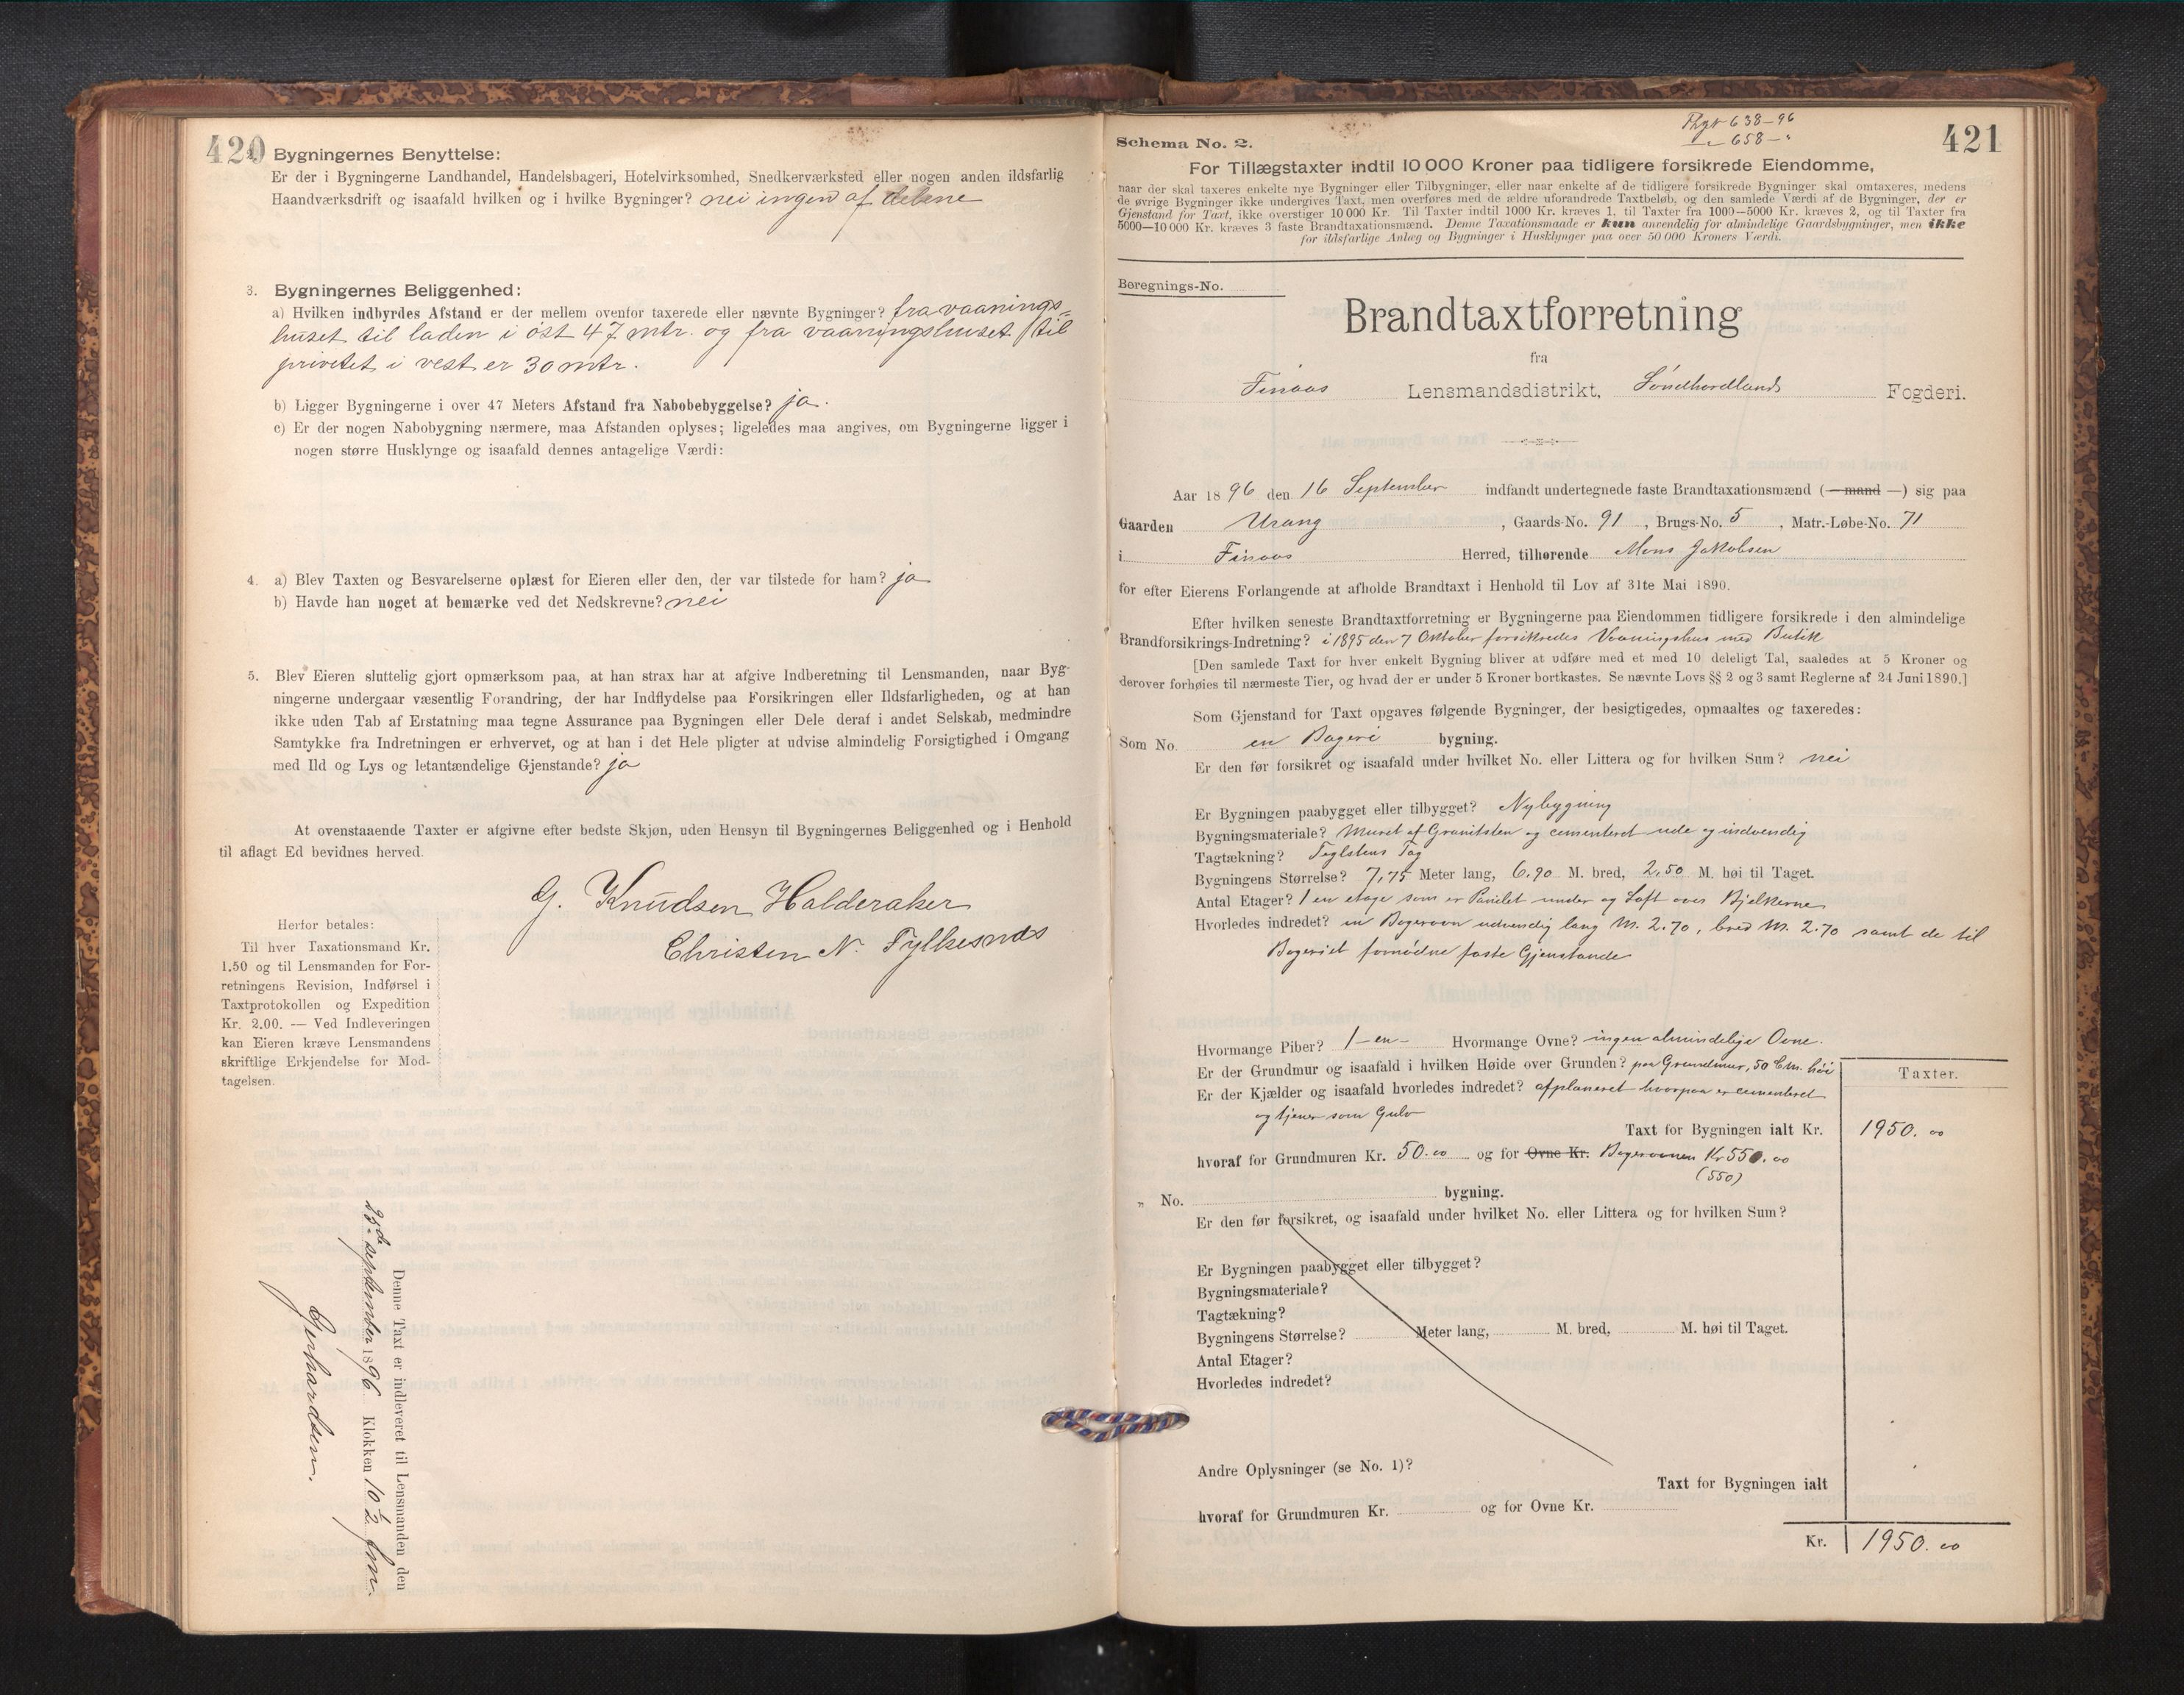 420
Bygningernes Benyttelse:
Er der i Bygningerne Landhandel, Handelsbageri, Hotelvirksomhed, Snedkerværksted eller nogen anden ildsfarlig
Haandværksdrift og isaafald hvilken og i hvilke Bygninger? nei ingen af delene
3. Bygningernes Beliggenhed:
a) Hvilken indbyrdes Afstand er der mellem ovenfor taxerede eller nævnte Bygninger? fra vaanings-
huset til laden i øst 47 mtr. og fra vaaningshuset til
privetet i vest er 30 mtr.
b) Ligger Bygningerne i over 47 Meters Afstand fra Nabobebyggelse? ja.
c) Er der nogen Nabobygning nærmere, maa Afstanden oplyses; ligeledes maa angives, om Bygningerne ligger i
nogen større Husklynge og isaafald dennes antagelige Værdi:
4. a) Blev Taxten og Besvarelserne oplæst for Eieren eller den, der var tilstede for ham? ja
b) Havde han noget at bemærke ved det Nedskrevne? nei
5. Blev Eieren sluttelig gjort opmærksom paa, at han strax har at afgive Indberetning til Lensmanden, naar Byg-
ningerne undergaar væsentlig Forandring, der har Indflydelse paa Forsikringen eller Ildsfarligheden, og at han
ikke uden Tab af Erstatning maa tegne Assurance paa Bygningen eller Dele deraf i andet Selskab, medmindre
Samtykke fra Indretningen er erhvervet, og at han i det Hele pligter at udvise almindelig Forsigtighed i Omgang
med Ild og Lys og letantændelige Gjenstande? ja
At ovenstaaende Taxter er afgivne efter bedste Skjøn, uden Hensyn til Bygningernes Beliggenhed og i Henhold
til aflagt Ed bevidnes herved.
G. Knudsen Halderaker
Christen N. Fylkesnæs
Herfor betales:
Til hver Taxationsmand Kr.
1.50 og til Lensmanden for For-
retningens Revision, Indførsel i
Taxtprotokollen og Expedition
Kr. 2.00. — Ved Indleveringen
kan Eieren kræve Lensmandens
skriftlige Erkjendelse for Mod-
tagelsen.
Denne Taxt er indleveret til Lensmanden den
25de september 1896 Klokken 10 ½ fm.
Gerhardsen.
421
638-96
658-"
Schema No. 2.
For Tillægstaxter indtil 10 000 Kroner paa tidligere forsikrede Eiendomme,
naar der skal taxeres enkelte nye Bygninger eller Tilbygninger, eller naar enkelte af de tidligere forsikrede Bygninger skal omtaxeres, medens
de øvrige Bygninger ikke undergives Taxt, men overføres med de ældre uforandrede Taxtbeløb, og den samlede Værdi af de Bygninger, der er
Gjenstand for Taxt, ikke overstiger 10 000 Kr. Til Taxter indtil 1000 Kr. kræves 1, til Taxter fra 1000—5000 Kr. kræves 2, og til Taxter fra
5000—10 000 Kr. kræves 3 faste Brandtaxationsmænd. Denne Taxationsmaade er kun anvendelig for almindelige Gaardsbygninger, men ikke
for ildsfarlige Anlæg og Bygninger i Husklynger paa over 50 000 Kroners Værdi.
Beregnings-No.
Brandtaxtforretning
fra
Finaas Lensmandsdistrikt, Søndhordlands Fogderi.
Aar 1896 den 16 September indfandt undertegnede faste Brandtaxationsmænd (— mand —) sig paa
Gaarden Urang, Gaards-No. 91, Brugs-No. 5, Matr.-Løbe-No. 71
i Finaas Herred, tilhørende Mons Jakobsen
for efter Eierens Forlangende at afholde Brandtaxt i Henhold til Lov af 31te Mai 1890.
Efter hvilken seneste Brandtaxtforretning er Bygningerne paa Eiendommen tidligere forsikrede i den almindelige
Brandforsikrings-Indretning? i 1895 den 7 Oktober forsikredes Vaaningshus med Butik
[Den samlede Taxt for hver enkelt Bygning bliver at udføre med et med 10 deleligt Tal, saaledes at 5 Kroner og
derover forhøies til nærmeste Tier, og hvad der er under 5 Kroner bortkastes. Se nævnte Lovs §§ 2 og 3 samt Reglerne af 24 Juni 1890.]
Som Gjenstand for Taxt opgaves følgende Bygninger, der besigtigedes, opmaaltes og taxeredes:
Som No. en Bageri bygning.
Er den før forsikret og isaafald under hvilket No. eller Littera og for hvilken Sum? nei
Er Bygningen paabygget eller tilbygget? Nybygning
Bygningsmateriale? Muret af Granitsten og cementeret ude og indvendig
Tagtækning? Teglstens Tag
Bygningens Størrelse? 7,75 Meter lang, 6,90 M. bred, 2,50 M. høi til Taget.
Antal Etager? 1 en etage som er Panelet under og Loft over Bjelkerne
Hvorledes indredet? en Bagerovn udvendig lang M. 2.70, bred M. 2.70 samt de til
Bageriet fornødne faste Gjenstande
Hvormange Piber? 1 -en- Hvormange Ovne? ingen almindelige Ovne.
Er der Grundmur og isaafald i hvilken Høide over Grunden? paa Grundmur, 50 Cm. høi
Er der Kjælder og isaafald hvorledes indredet? afplaneret hvorpaa er cementeret
og tjener som Gulv
Taxter.
Taxt for Bygningen ialt Kr. 1950.00
hvoraf for Grundmuren Kr. 50.00 og for Ovne Kr. Bagerovnen Kr 550.00
(550)
„ No. bygning.
Er den før forsikret, og isaafald under hvilket No. eller Littera og for hvilken Sum?
Er Bygningen paabygget eller tilbygget?
Bygningsmateriale?
Tagtækning?
Bygningens Størrelse? Meter lang, M. bred, M. høi til Taget.
Antal Etager?
Hvorledes indredet?
Andre Oplysninger (se No. 1)?
Taxt for Bygningen ialt
hvoraf for Grundmuren Kr. og for Ovne Kr.
Kr. 1950.00